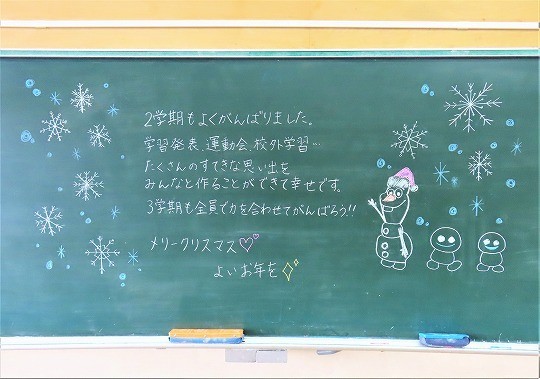 2学期もよくがんばりました。
学習発表、運動会、校外学習…
たくさんのすてきな思い出を
みんなと作ることができて幸せです。
3学期も全員で力を合わせてがんばろう!!
メリークリスマス♡♡
よいお年を